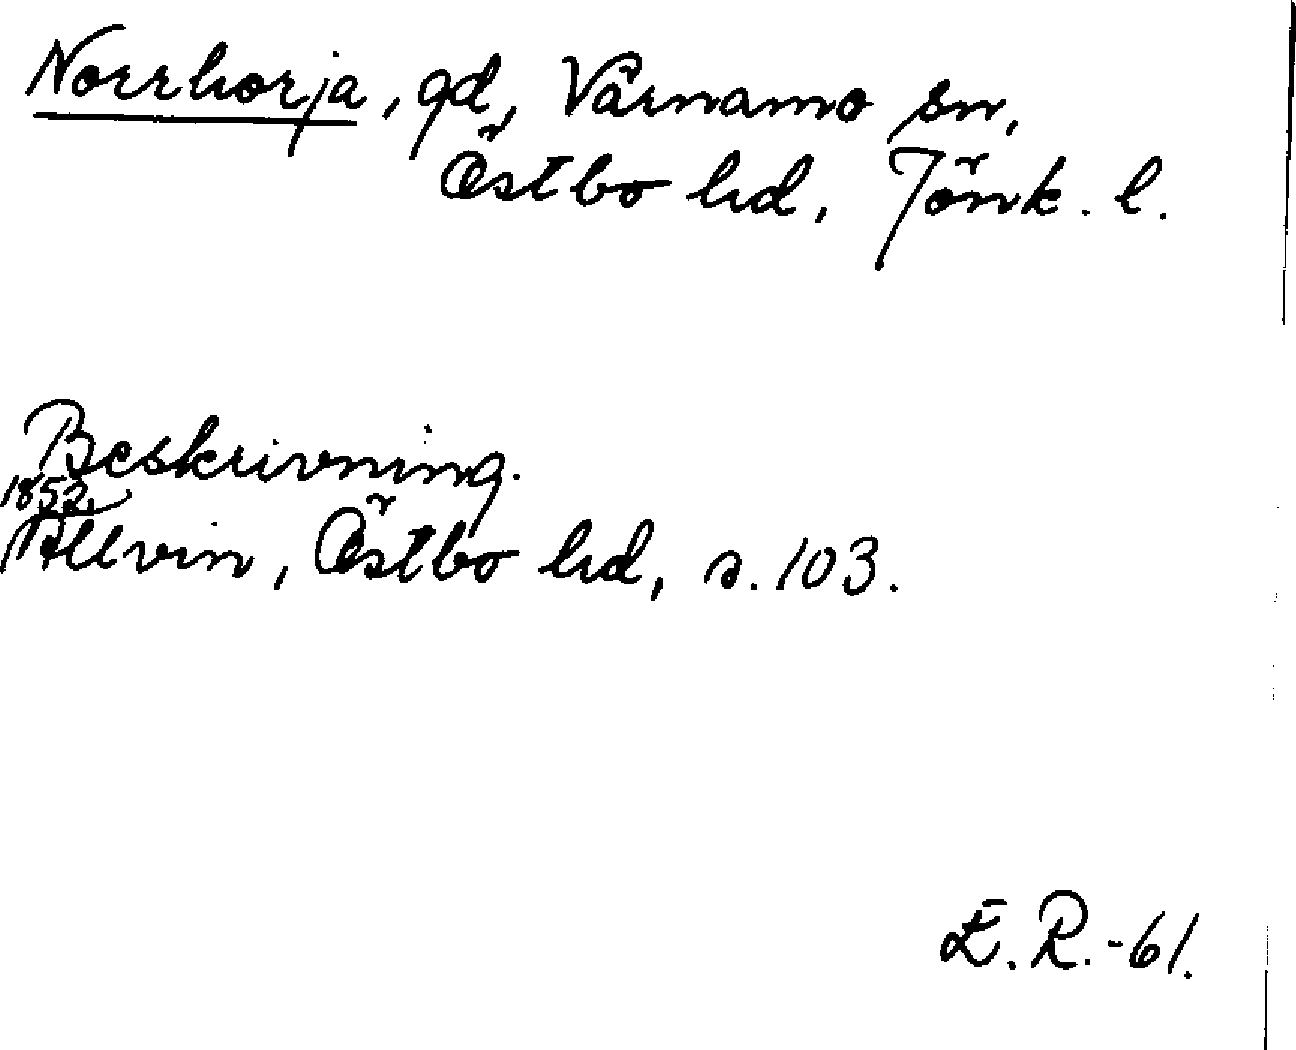 Norrhorja, gd, Värnamo sn,
Östbo hd, Jönk. l.
Beskrivning.
1852,
Allvin, Östbo hd, s. 103.
E. R. -61.